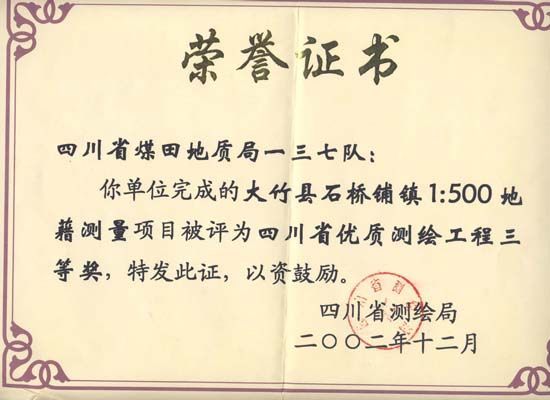 荣誉证书
四川省煤田地质局一三七队：
你单位完成的大竹县石桥铺镇1:500地
藉测量项目被评为四川省优质测绘工程三
等奖，特发此证，以资鼓励。
四川省测绘局
二〇〇二年十二月